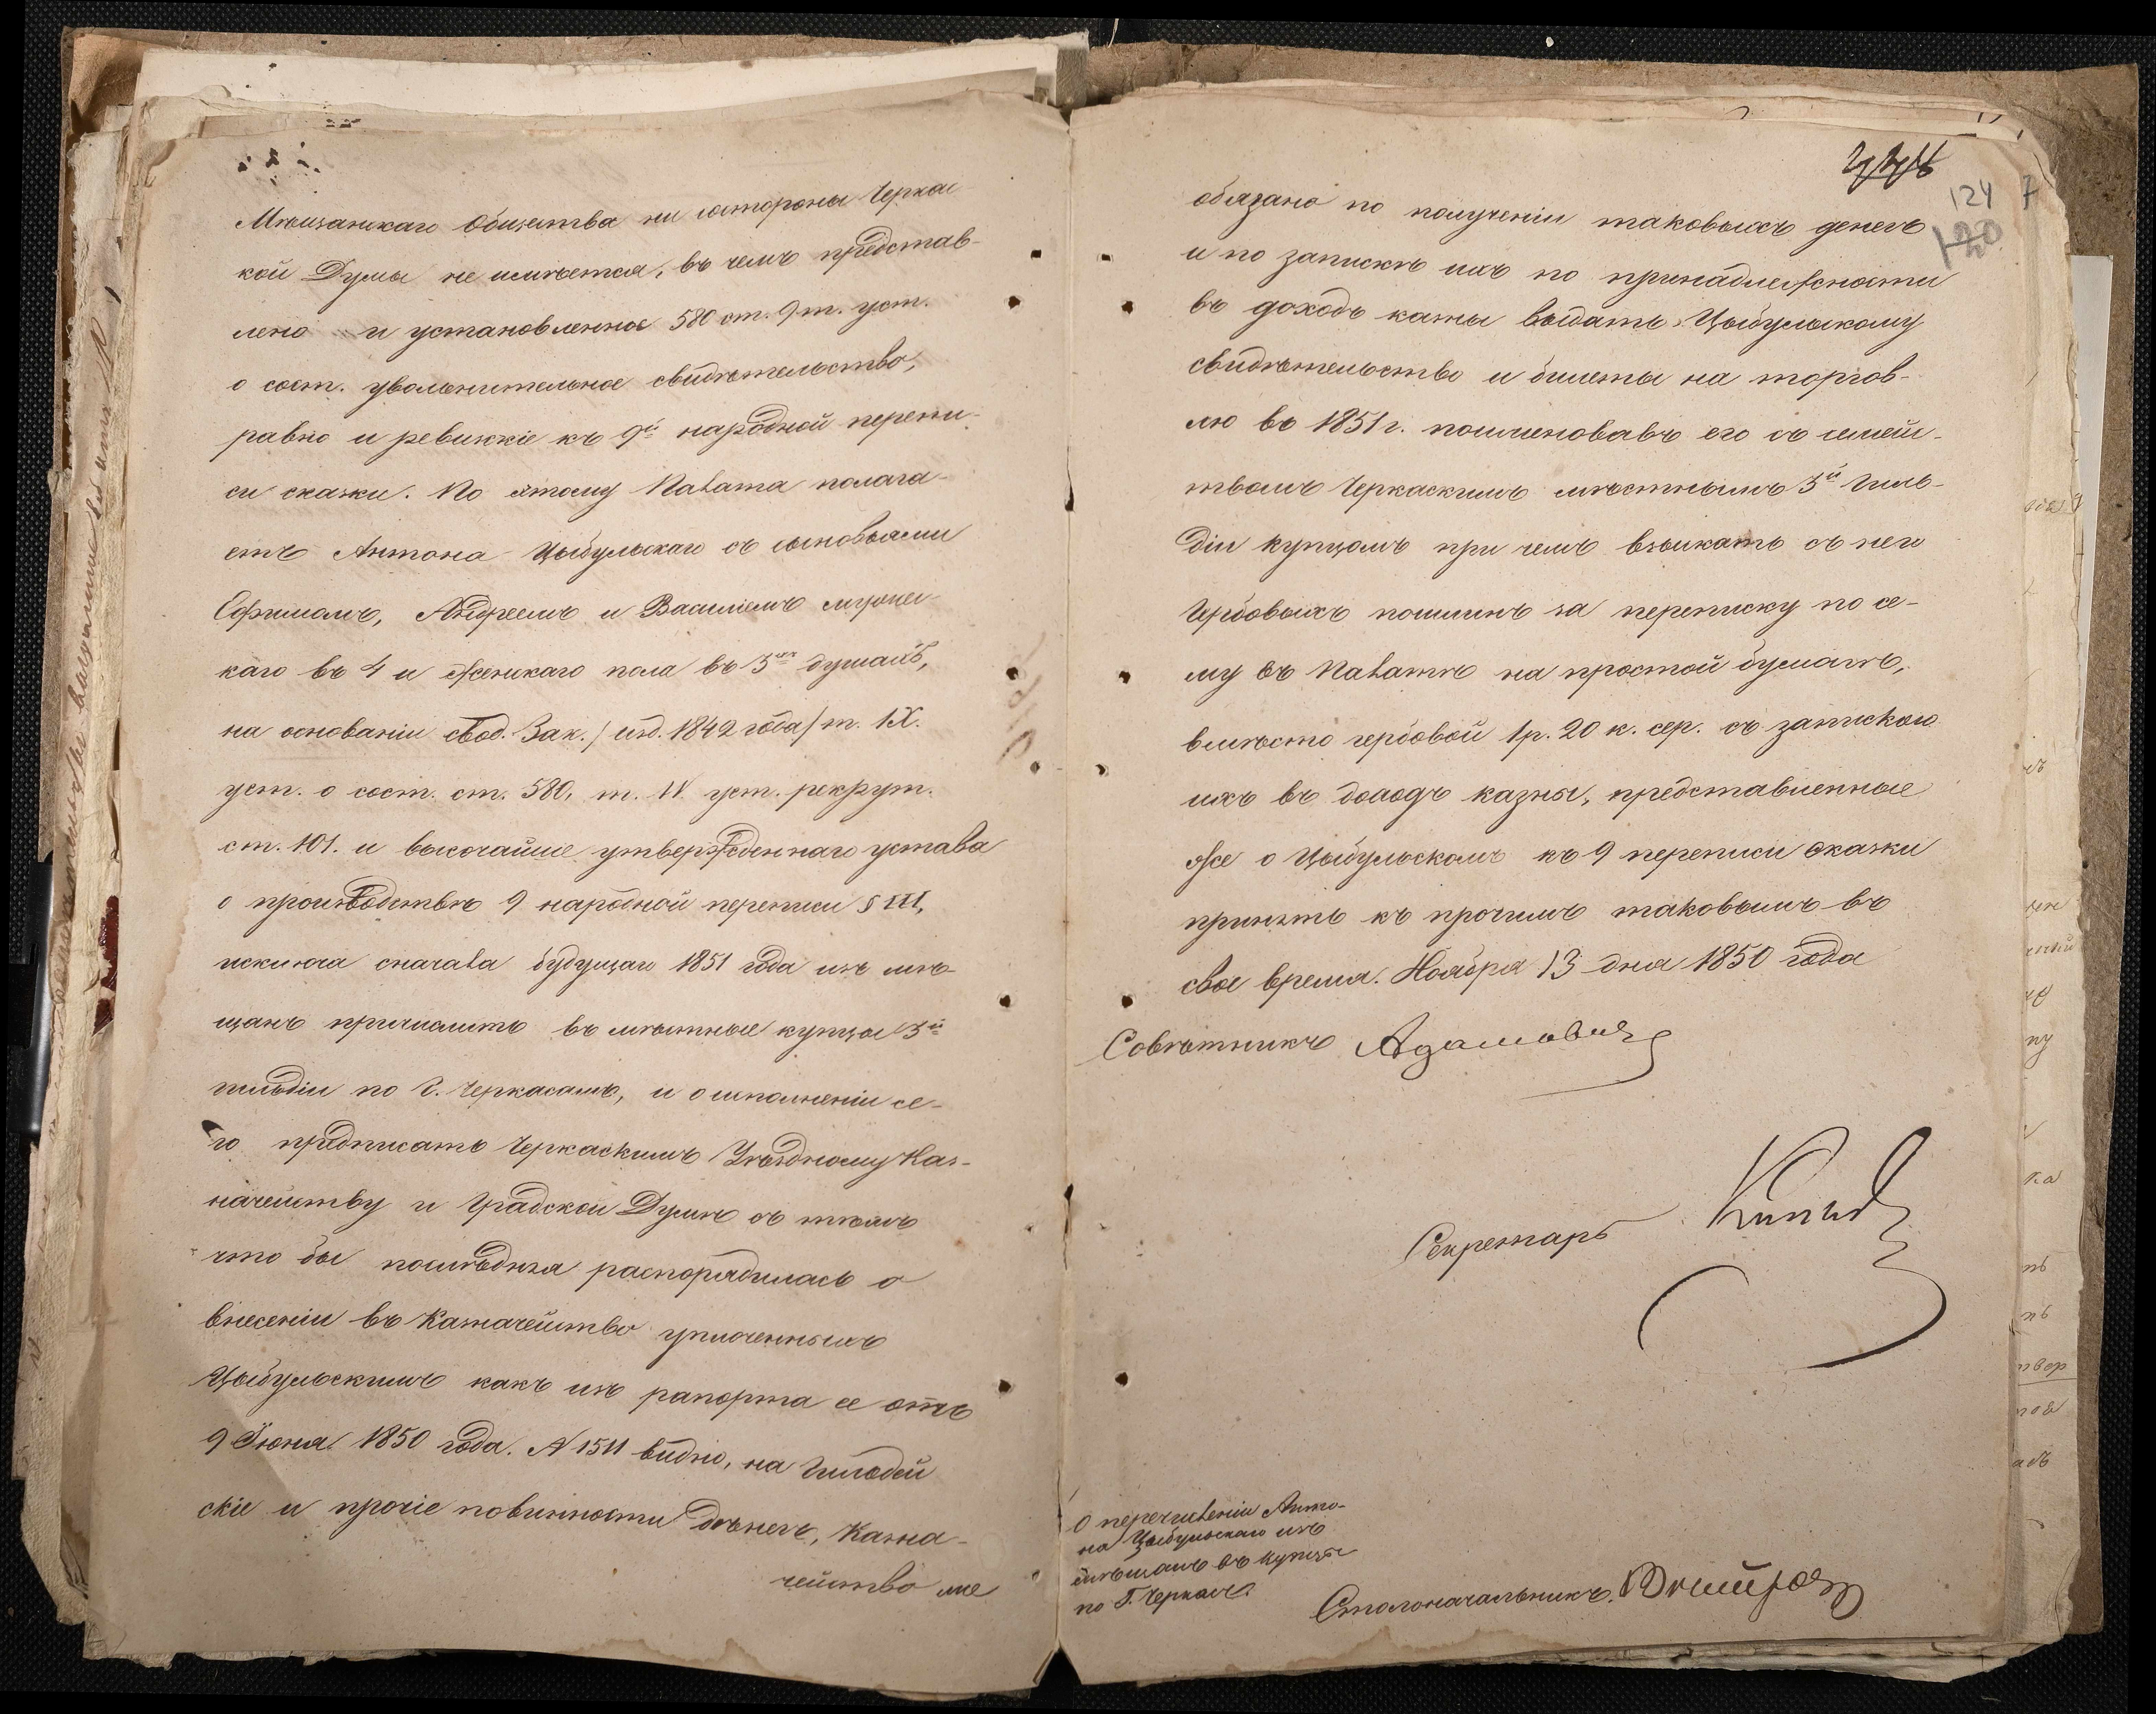 Мѣщанскаго Общества ни состороны Черкас-
кой Думы не имѣется, въ чемъ представ-
лено и установленное 580 ст. 9 т. уст.
о сост. увольнительное свидѣтельство,
равно и ревизкіе къ 9й народной перепи-
си сказки. По этому Палата полага-
етъ Антона Цыбульскаго съ сыновьями
Ефимомъ, Андреемъ и Василіемъ мужес-
каго въ 4 и женскаго пола въ 3хъ душахъ,
на основаніи свод. Зак. / изд. 1842 года / т. IX.
уст. о сост. ст. 580, т. IV уст. рекрут.
ст. 101. и высочайше утвержденнаго устава
о производствѣ 9 народной переписи § III,
исключа сначала будущаго 1851 года изъ мѣ-
щанъ причислить въ мѣстные купцы 3й
гильдіи по г. Черкасамъ, и о исполненіи се-
го предписать Черкаскимъ Уѣздному Каз-
начейству и Градской Думѣ съ тѣмъ
что бы послѣдняя распорядилась о
внесеніи въ Казначейство уплоченныхъ
Цыбульскимъ какъ изъ рапорта ее отъ
9 Іюня 1850 года. N 1511 видно, на Гильдей
скіе и прочіе повинности дѣнегъ, Казна-
чейство же
124 7
120
обязано по полученіи таковыхъ денегъ
и по запискѣ ихъ по принадлежности
въ доходъ казны выдать Цыбульскому
свидѣтельство и билеты на торгов-
лю въ 1851 г. поименовавъ его съ семей-
ствомъ Черкаскимъ мѣстнымъ 3й Гиль-
діи купцомъ при чемъ взыскать съ него
Гербовыхъ пошлинъ за переписку по се-
му въ Палатѣ на простой бумагѣ,
вмѣсто гербовой 1 р. 20 к. сер. съ запискою
ихъ въ доходъ казны, представленные
же о Цыбульскомъ къ 9 переписи сказки
принять къ прочимъ таковымъ въ
свое время. Ноября 13 дня 1850 года
Совѣтникъ Адамовичъ
Секретарь
О перечисленіи Анто-
на Цыбульскаго изъ
мѣщанъ въ купцы
по Г. Черкасы.
Столоначальникъ